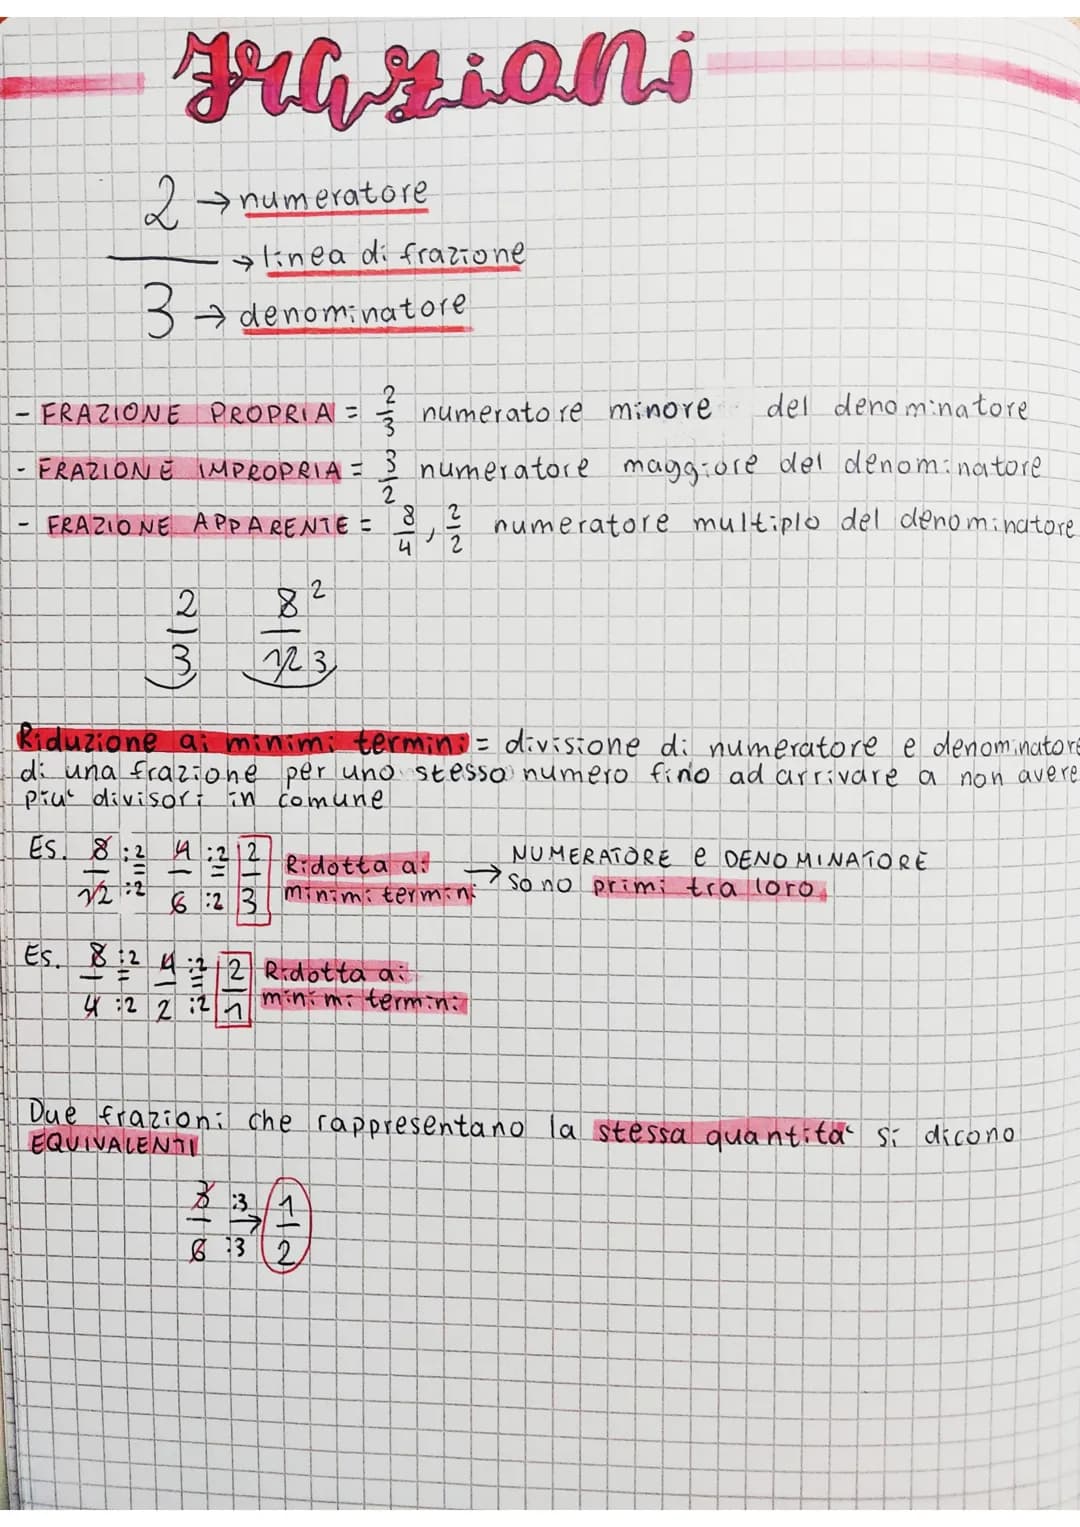 Frazioni
2 → numeratore
→ linea di frazione
3 → denominatore
- FRAZIONE PROPRIA = 2/3 numeratore minore del denominatore
- FRAZIONE IMPROPRIA = 3/2 numeratore maggiore del denominatore
- FRAZIONE APPARENTE = 8/4, 2/2 numeratore multiplo del denominatore
2 8 2
3 12 3
Riduzione ai minimi termini = divisione di numeratore e denominatore
di una frazione per uno stesso numero fino ad arrivare a non avere
piu' divisori in comune
Es. 8 :2 = 4 :2 = 2 Ridotta ai → NUMERATORE e DENOMINATORE
12 :2 6 :2 3 minimi termini sono primi tra loro
Es. 8 :2 = 4 :2 = 2 Ridotta ai
4 :2 2 :2 1 minimi termini
Due frazioni che rappresentano la stessa quantita' si dicono
EQUIVALENTI
3 :3 → 1
6 :3 2